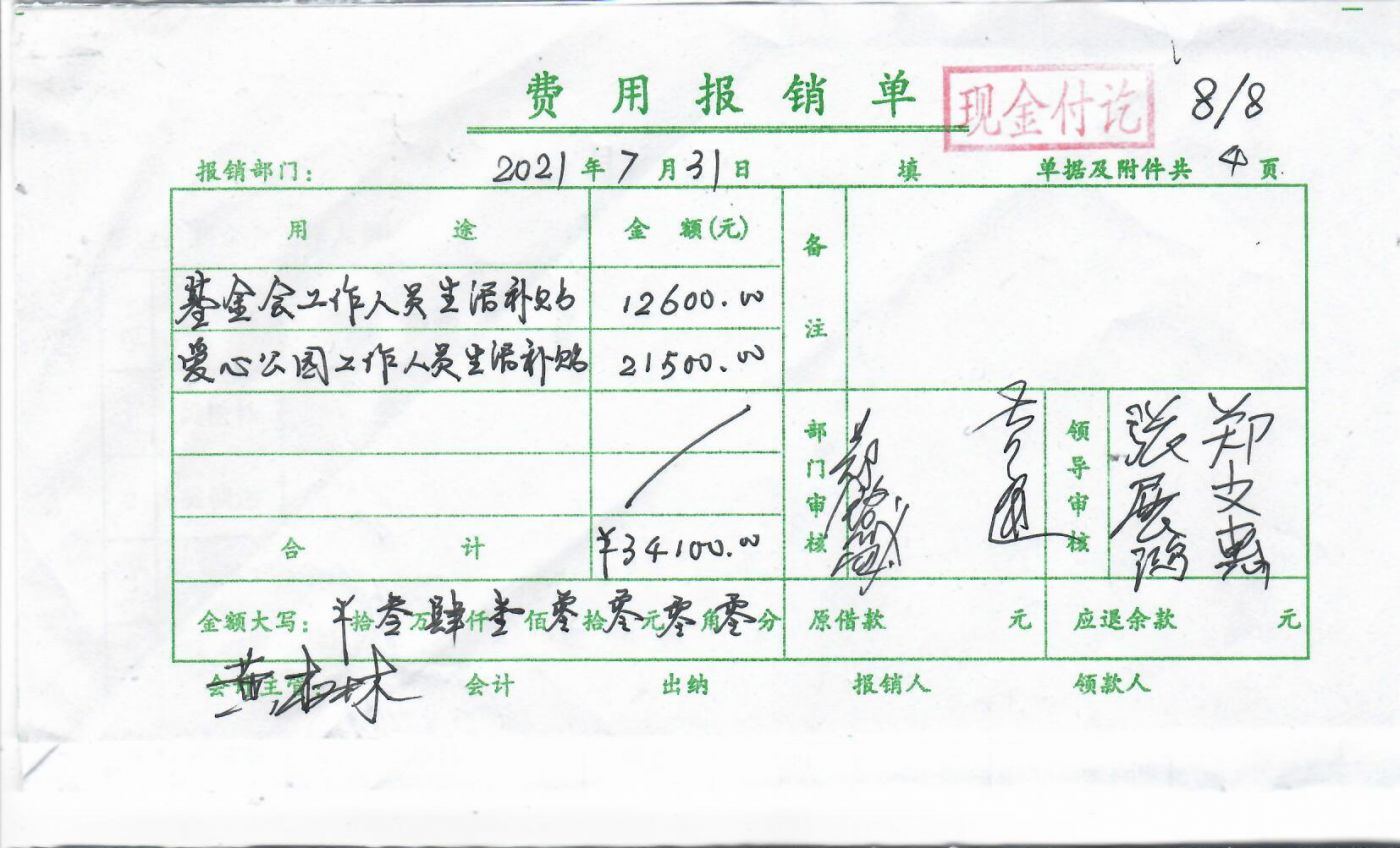 费用报销单 现金付讫 8/8
报销部门： 2021年7月31日 填 单据及附件共 4 页
用途 金额(元) 备注
基金会工作人员生活补贴 12600.00
爱心公园工作人员生活补贴 21500.00
部门审核 领导审核 张展 郑文惠
合计 ¥34100.00
金额大写：¥拾叁万肆仟壹佰零拾零元零角零分 原借款 元 应退余款 元
会计主管： 会计 出纳 报销人 领款人